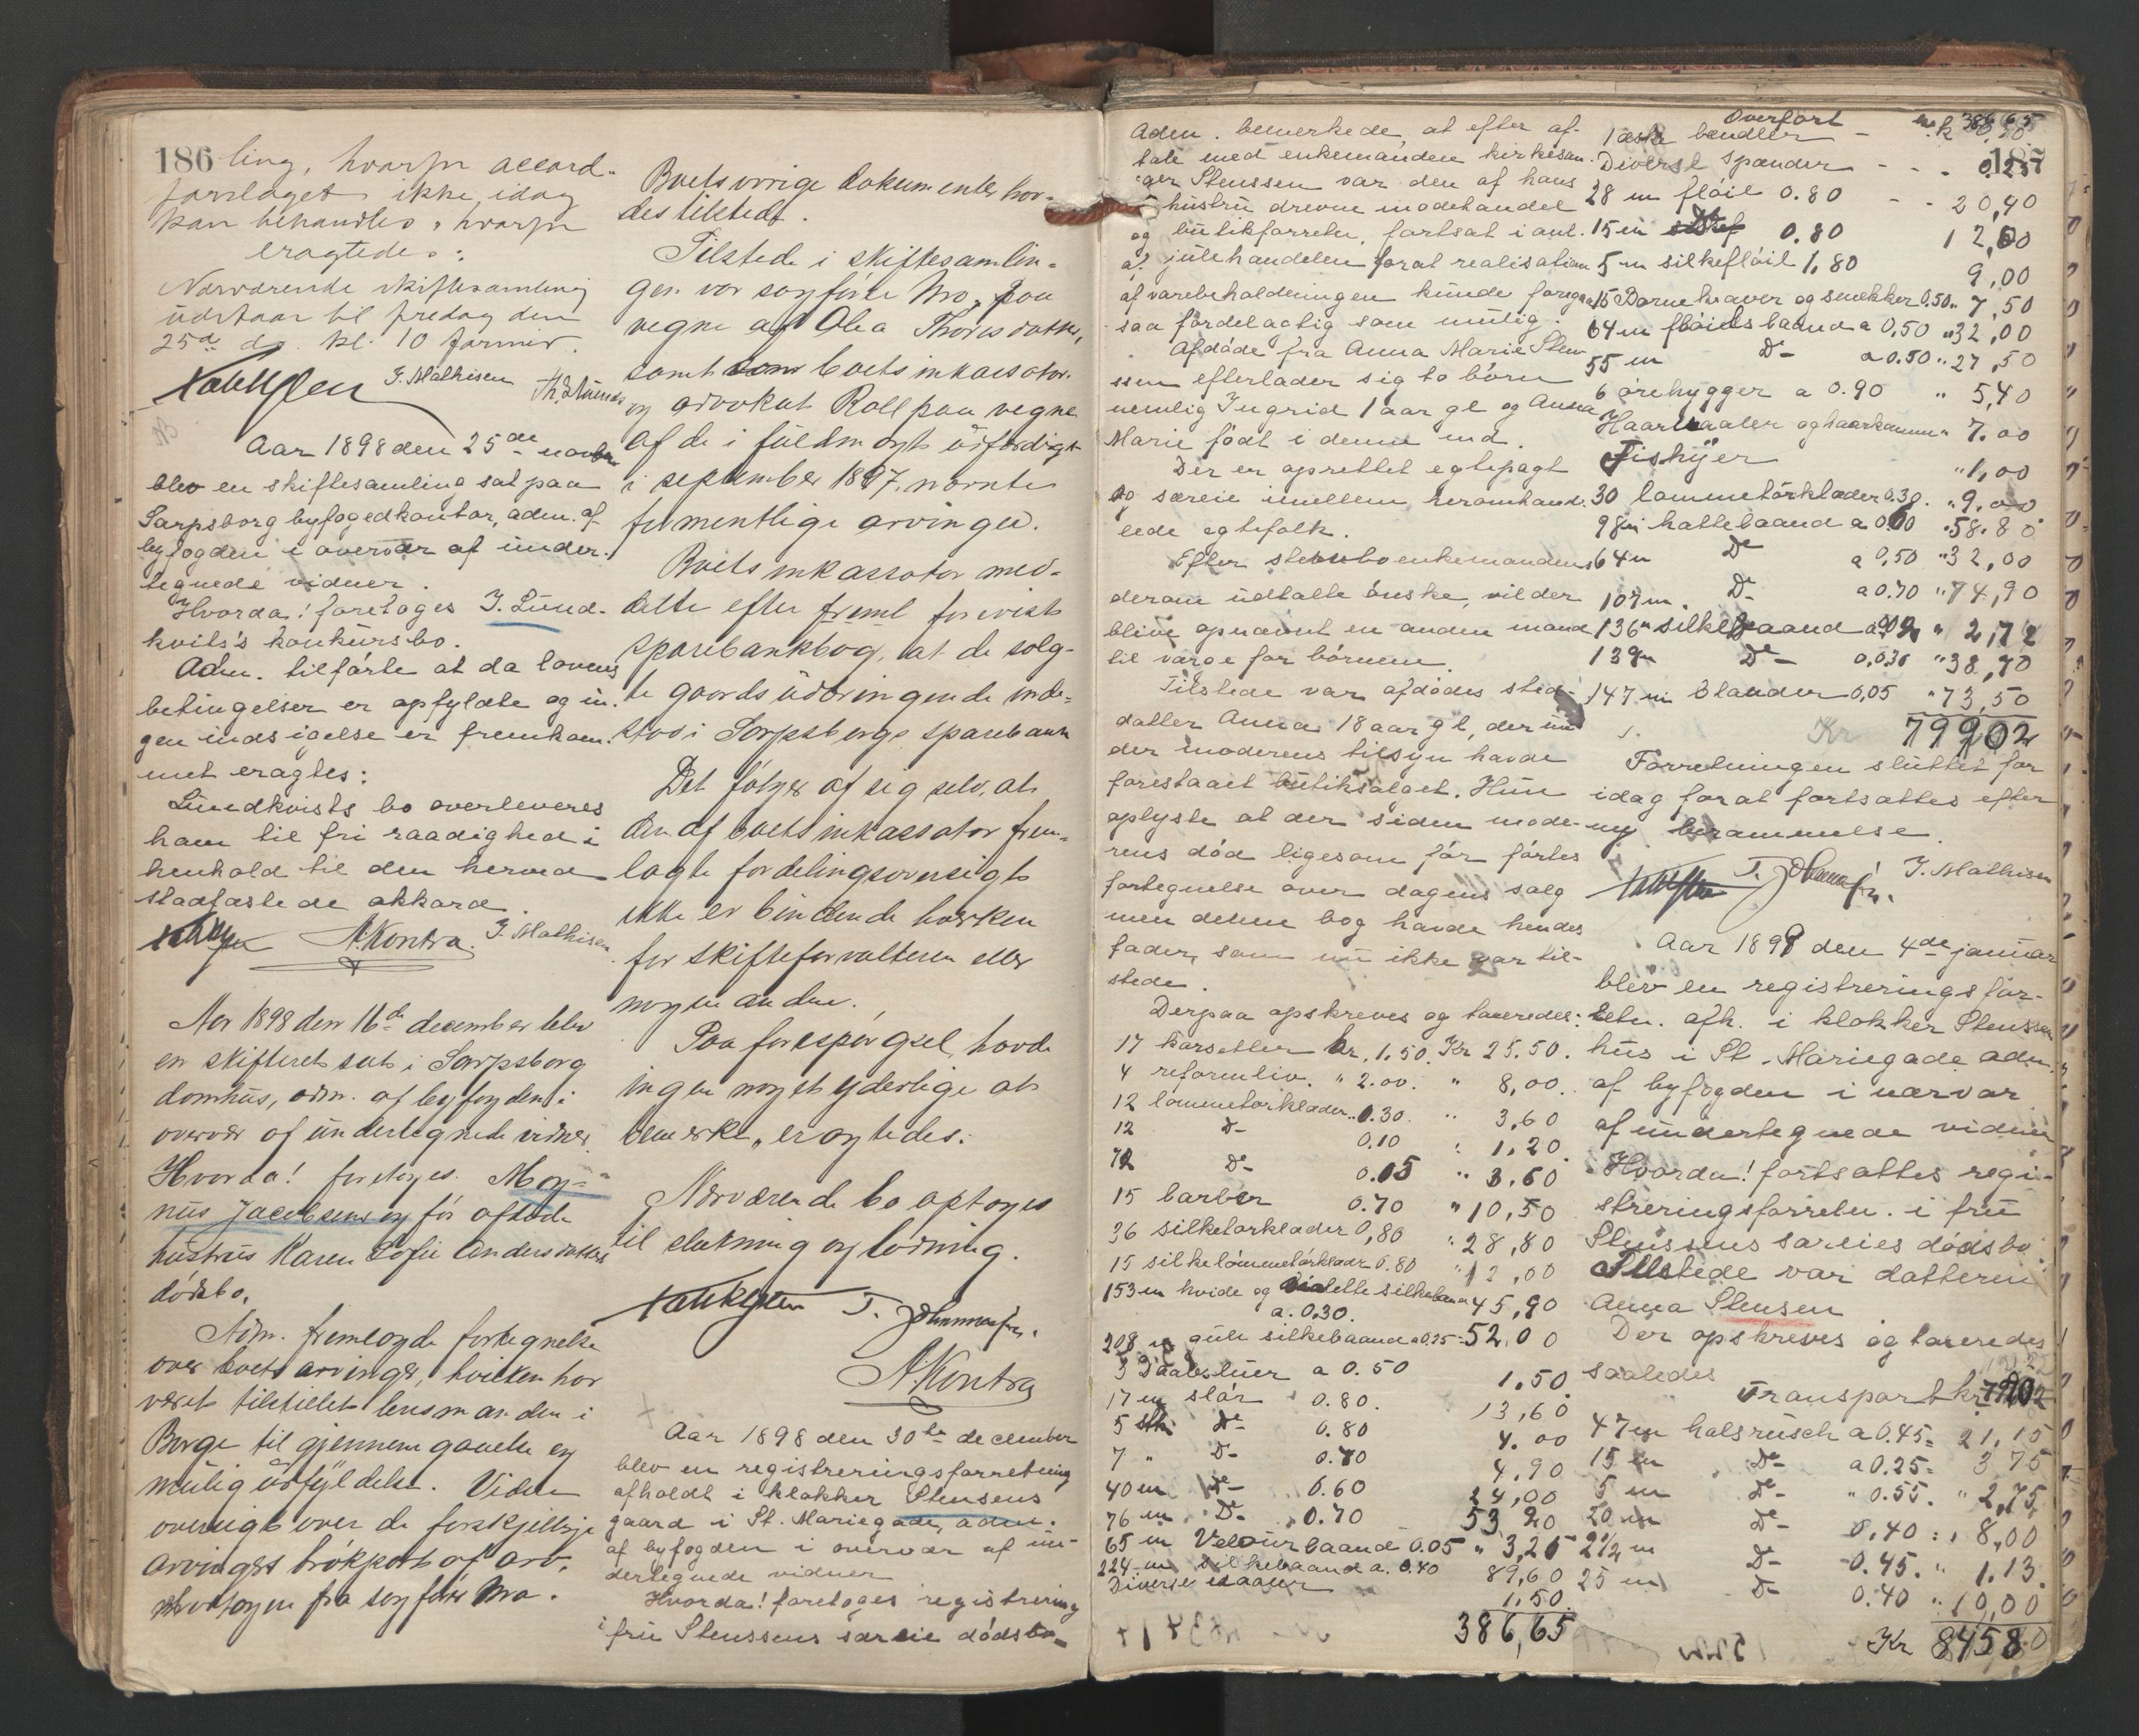 186 ling, hvorfor accord-
forslaget ikke idag
kan behandles, hvorfor
eragtedes:
Nærværende skiftesamling
udstaar til fredag den
25de ds. kl. 10 formid.
J. Mathisen
Aar 1898 den 25de novbr
blev en skiftesamling sat paa
Sarpsborg byfogedkontor, adm. af
byfogden i overvær af under-
tegnede vidner.
Hvorda! foretoges J. Lund-
kvits's konkursbo.
Adm. tilførte at da lovens
betingelser er opfyldte og in-
gen indsigelse er fremkom-
met eragtes:
Lundkvists bo overleveres
ham til fri raadighed i
henhold til den herved
stadfæstede akkord.
A. Kontra. J. Mathisen
Aar 1898 den 16de december blev
en skifteret sat i Sarpsborg
domhus, adm. af byfogden i
overvær af undertegnede vidner.
Hvorda! foretoges Mag-
nus Jacobsens og før afdøde
hustrus Karen Sofie Andersdatters
dødsbo.
Adm. fremlagde fortegnelse
over boets arvinger, hvilken har
været tilstillet lensmanden i
Borge til gjennemgaaelse og
mulig udfyldelse. Videre
oversigt over de forskjellige
arvingers brøkpart af arv,
modtagen fra sagfører Mro.
Boets øvrige dokumenter hav-
des tilstede.
Tilstede i skiftesamlin-
gen var sagfører Mro, paa
vegne af Olea Thoresdatter,
samt som boets inkassator
og advokat Roll paa vegne
af de i fuldmagt udfærdiget
i september 1897, nævnte
testamentlige arvinger.
Boets inkassator med-
delte efter freml forevist
sparebankbog, at de solg-
te gaards udbringende inde-
stod i Sarpsborgs sparebank
Det følger af sig selv, at
den af boets inkassator frem-
lagte fordelingsoversigt
ikke er bindende hverken
for skifteforvalteren eller
nogen anden.
Paa forespørgsel, havde
ingen noget yderligere at
bemerke, eragtedes:
Nærværende bo optoges
til slutning og lodning.
A. Kontra
Aar 1898 den 30te december
blev en registreringsforretning
afholdt i klokker Stensens
gaard i St. Mariegade, adm.
af byfogden i overvær af un-
dertegnede vidner
Hvorda! foretoges registrering
i fru Stenssens særeie dødsbo
Adm. bemerkede, at efter af-
tale med enkemanden kirkesan-
ger Stenssen var den af hans
hustru drevne modehandel
og butikforretn. fortsat i anl.
af julehandelen forat realisation
af varebeholdningen kunde foregaa
saa fordelagtig som mulig.
Afdøde fru Anna Marie Sten-
ssen efterlader sig to børn
nemlig Ingrid 1 aar gl og Anna
Marie født i denne md.
Der er oprettet egtepagt
og særeie imellem heromhand-
lede egtefolk.
Efter stervboenkemandens
derom udtalte ønske, vil der
blive opnævnt en anden mand
til værge for børnene.
Tilstede var afdødes sted-
datter Anna 18 aar gl, der un-
der moderens tilsyn havde
forestaaet butiksalget. Hun
oplyste at der siden mode-
rens død ligesom før førtes
fortegnelse over dagens salg
men denne bog havde hendes
fader, som nu ikke var til-
stede.
Derpaa opskreves og taxeredes:
17 korsetter kr. 1.50. Kr 25.50.
4 reformliv. " 2.00. " 8,00.
12 lommetørklæder " 0.30. " 3,60
12 Do 0.10 " 1,20.
72 Do 0.05 " 3.60
15 barber 0.70 " 10,50
36 silketørklæder 0,80 " 28,80
15 silkelommetørklæder 0.80 " 12,00
153 m hvide og violette silkebaand 45,90
a. 0,30.
208 m gule silkebaand a 0.25 = 52.00
3 Daabsluer a 0.50 1.50.
17 m slør " 0.80. 13,60
5 stk Do 0.80 4.00
7 " Do 0.70 4,90
40 m Do 0.60 24,00
76 m Do 0.70 53 20
65 m Velourbaand 0.05 " 3,25
224 m silkebaand a. 0.40 89,60
Diverse 1.50.
386,65
Overført kr 386 65
1 æske bændler
187
Diverse spænder - - - 0.25
28 m fløil 0.80 - - 20,40
15 m Do 0.80 12,00
5 m silkefløil 1,80 9,00
15 Børnekraver og smekker 0.50 " 7,50
64 m fløielsbaand a 0,50 " 32,00
55 m Do a 0.50 " 27,50
6 ørehygger a 0.90 " 5,40
Haarnaaler og haarkamme " 7.00
Fishyer " 1,00
30 lommetørklæder 0.30. " 9.00
98 m hattebaand a 0.60 " 58.80
64 m Do a 0,50 " 32,00
107 m. Do a 0.70 " 74,90
136 m silkebaand a 0.02 " 2,72
139 m Do 0,030 " 38,70
147 m Blonder 0,05 " 73,50
Kr 79902
Forretningen sluttet for
idag forat fortsættes efter
ny berammelse.
J. Mathisen
Aar 1899 den 4de januar
blev en registreringsfor-
retn. afh. i klokker Stenssens
hus i St. Mariegade adm.
af byfogden i nærvær
af undertegnede vidner
Hvorda! fortsattes regi-
streringsforretn. i fru
Stenssens særeies dødsbo.
Tilstede var datteren
Anna Stensen
Der opskreves og taxeredes
saaledes
Transport kr 79902
47 m halsrusch a 0.45 = 21,15
15 m Do a 0.25 = 3 75
5 m Do " 0.55. " 2,75
20 m Do 0,40 : " 8,00
2 1/2 m Do 0.45. " 1.13
25 m Do 0.40 " 10,00
Kr 84580